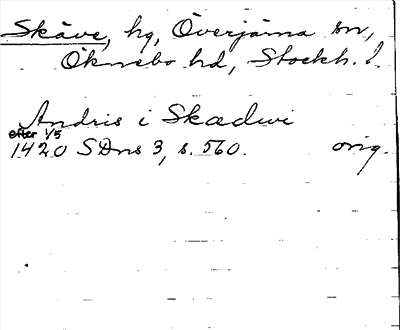 Skäve, hg, Överjärna sn,
Öknebo hd, Stockh. l.
Andris i Skædwi
efter 1/5
1420 SDns 3, s. 560. orig.